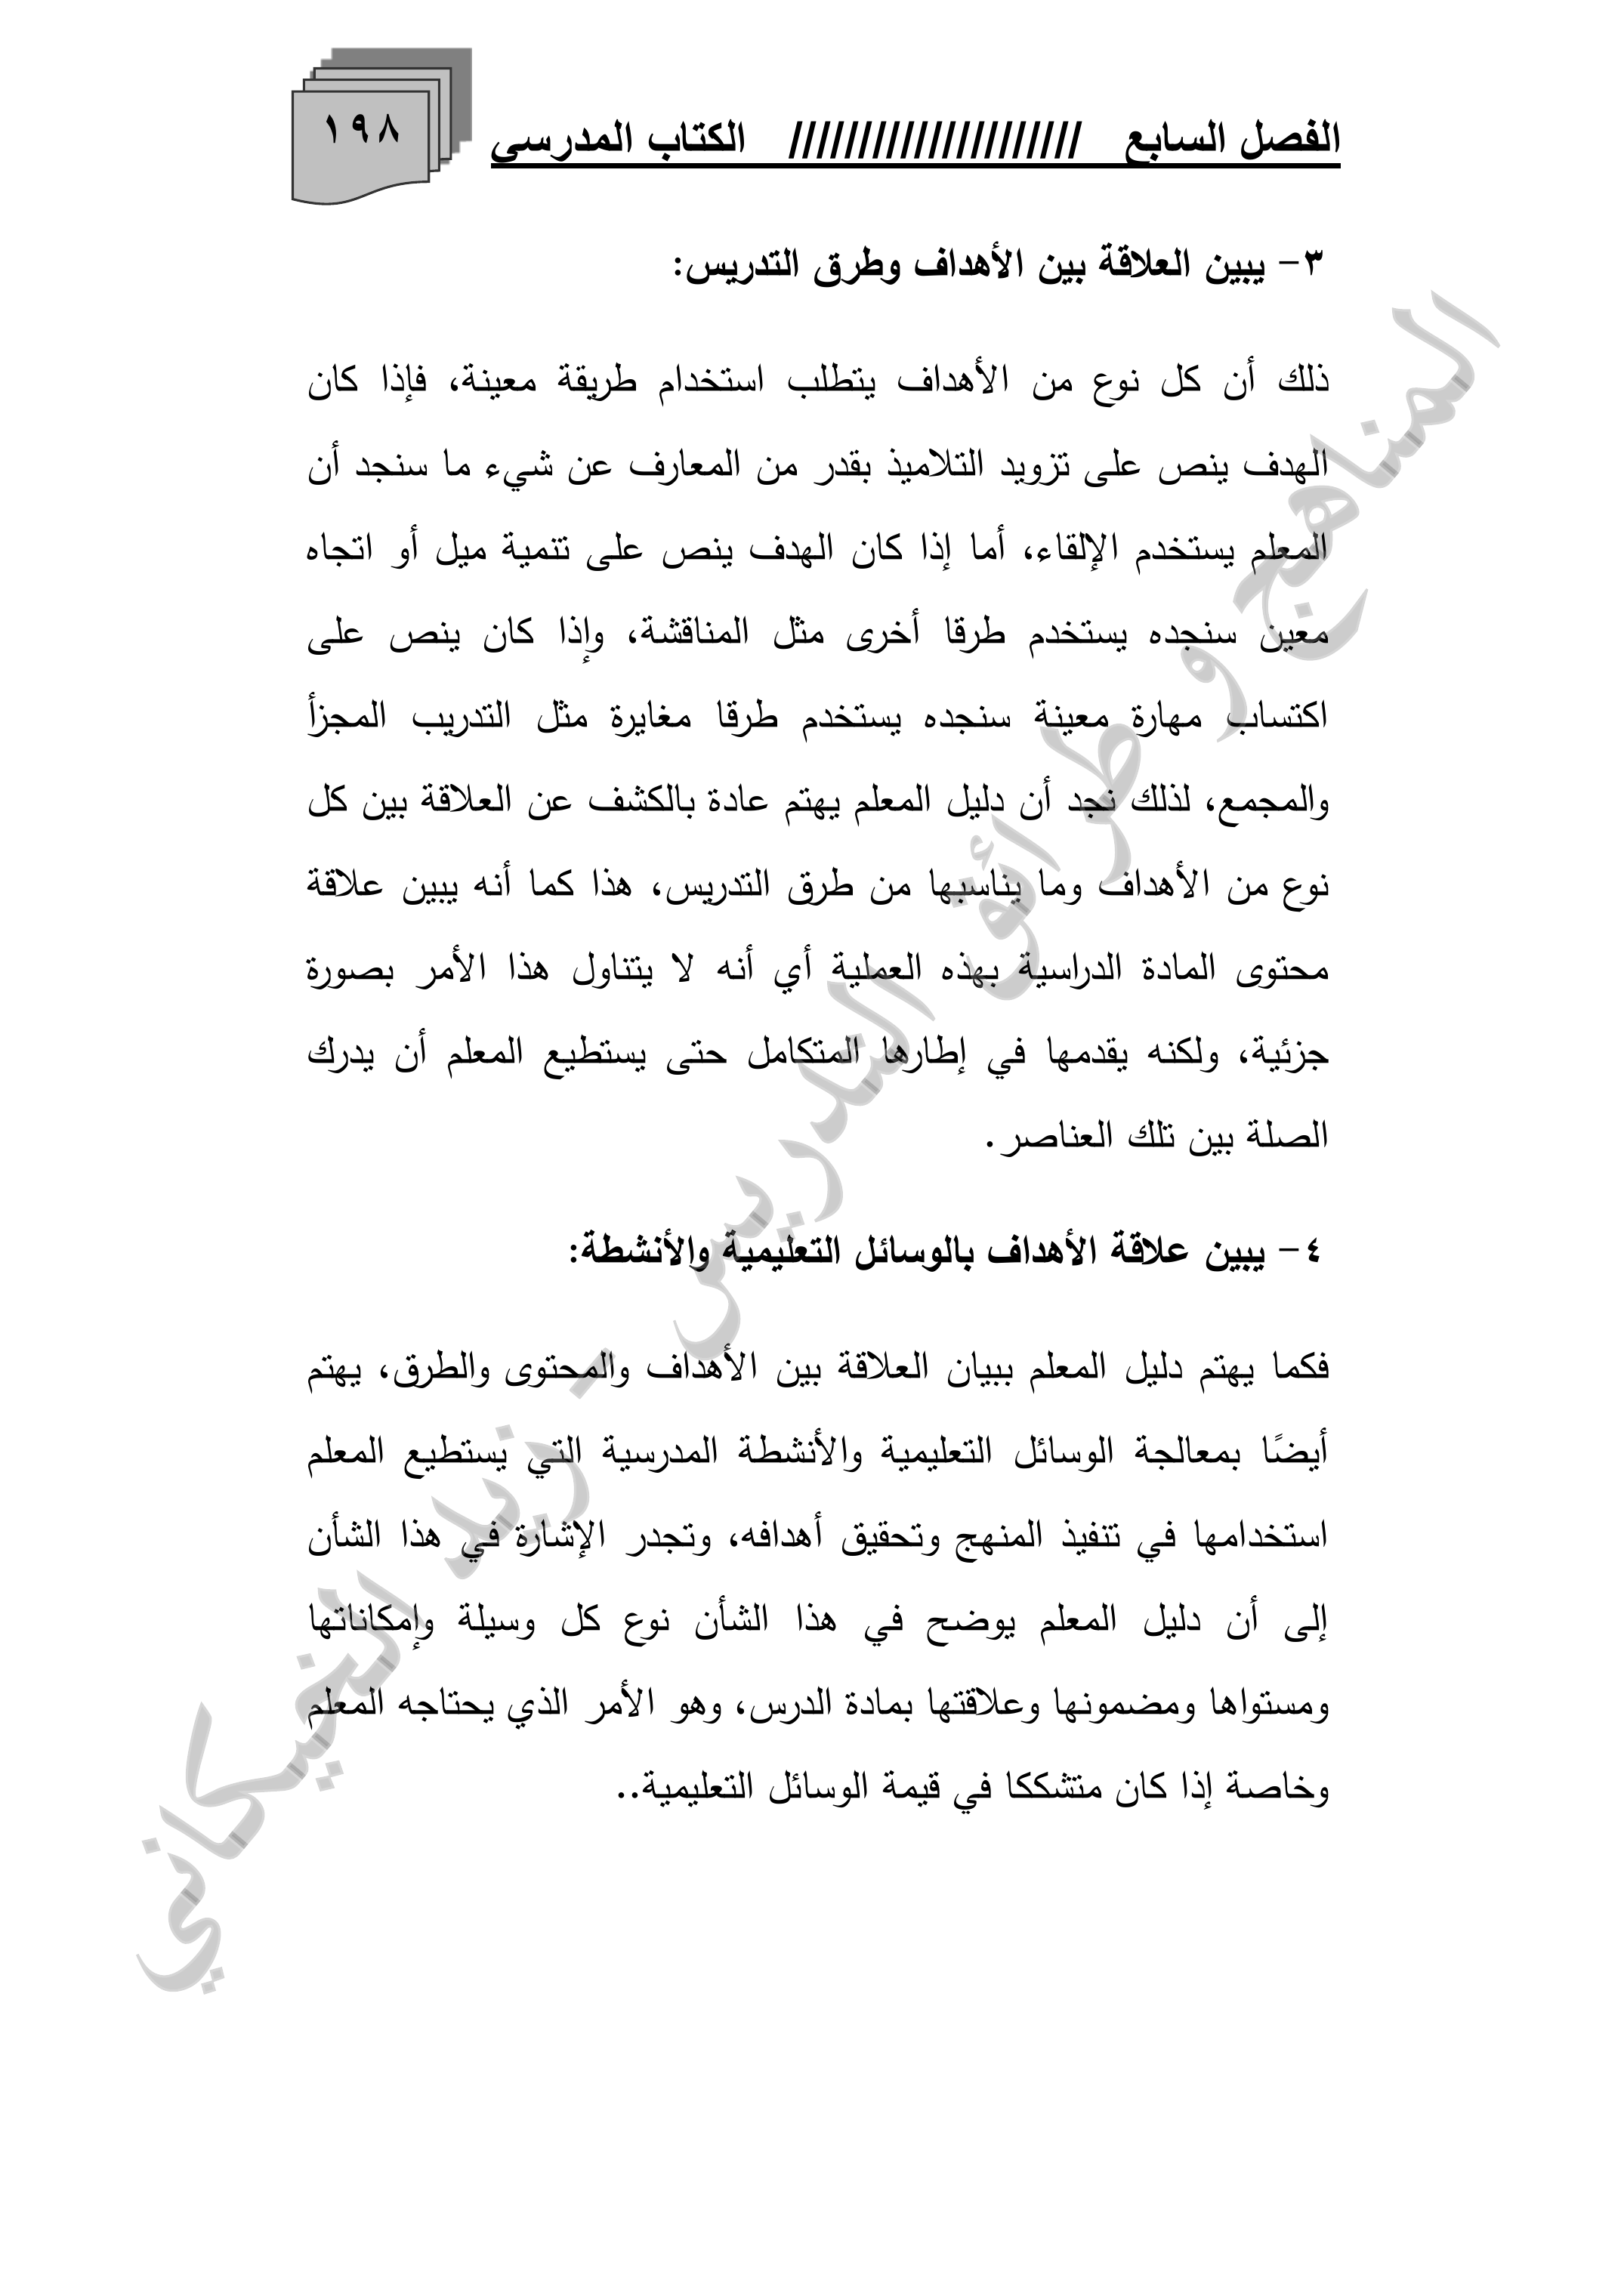 الفصل السابع ///////////////////// الكتاب المدرسي
١٩٨
٣- يبين العلاقة بين الأهداف وطرق التدريس:
ذلك أن كل نوع من الأهداف يتطلب استخدام طريقة معينة، فإذا كان
الهدف ينص على تزويد التلاميذ بقدر من المعارف عن شيء ما سنجد أن
المعلم يستخدم الإلقاء، أما إذا كان الهدف ينص على تنمية ميل أو اتجاه
معين سنجده يستخدم طرقا أخرى مثل المناقشة، وإذا كان ينص على
اكتساب مهارة معينة سنجده يستخدم طرقا مغايرة مثل التدريب المجزأ
والمجمع، لذلك نجد أن دليل المعلم يهتم عادة بالكشف عن العلاقة بين كل
نوع من الأهداف وما يناسبها من طرق التدريس، هذا كما أنه يبين علاقة
محتوى المادة الدراسية بهذه العملية أي أنه لا يتناول هذا الأمر بصورة
جزئية، ولكنه يقدمها في إطارها المتكامل حتى يستطيع المعلم أن يدرك
الصلة بين تلك العناصر.
٤- يبين علاقة الأهداف بالوسائل التعليمية والأنشطة:
فكما يهتم دليل المعلم ببيان العلاقة بين الأهداف والمحتوى والطرق، يهتم
أيضًا بمعالجة الوسائل التعليمية والأنشطة المدرسية التي يستطيع المعلم
استخدامها في تنفيذ المنهج وتحقيق أهدافه، وتجدر الإشارة في هذا الشأن
إلى أن دليل المعلم يوضح في هذا الشأن نوع كل وسيلة وإمكاناتها
ومستواها ومضمونها وعلاقتها بمادة الدرس، وهو الأمر الذي يحتاجه المعلم
وخاصة إذا كان متشككا في قيمة الوسائل التعليمية..
المناهج و طرائق التدريس - زيد الخيكاني